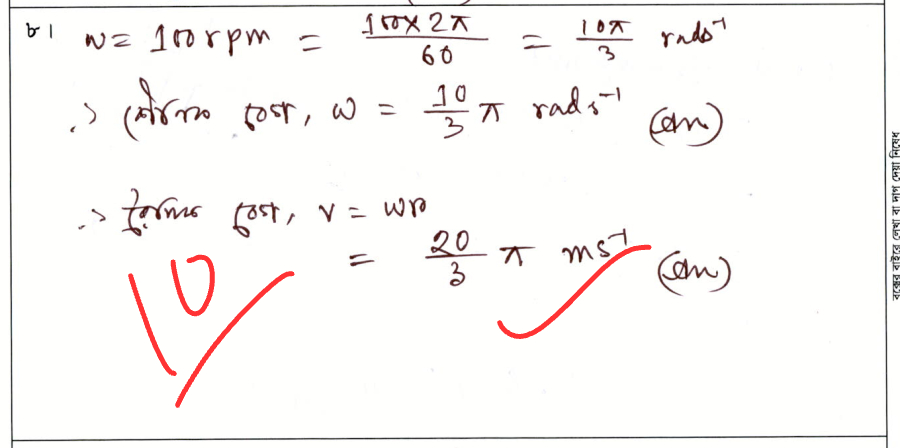 ৮। ω = 100 rpm = 100×2π/60 = 10π/3 rads⁻¹
∴ কৌণিক বেগ, ω = 10/3 π rads⁻¹ (Ans)
∴ রৈখিক বেগ, v = ωr
= 20/3 π ms⁻¹ (Ans)
10
বক্সের বাইরে লেখা বা দাগ দেয়া নিষেধ